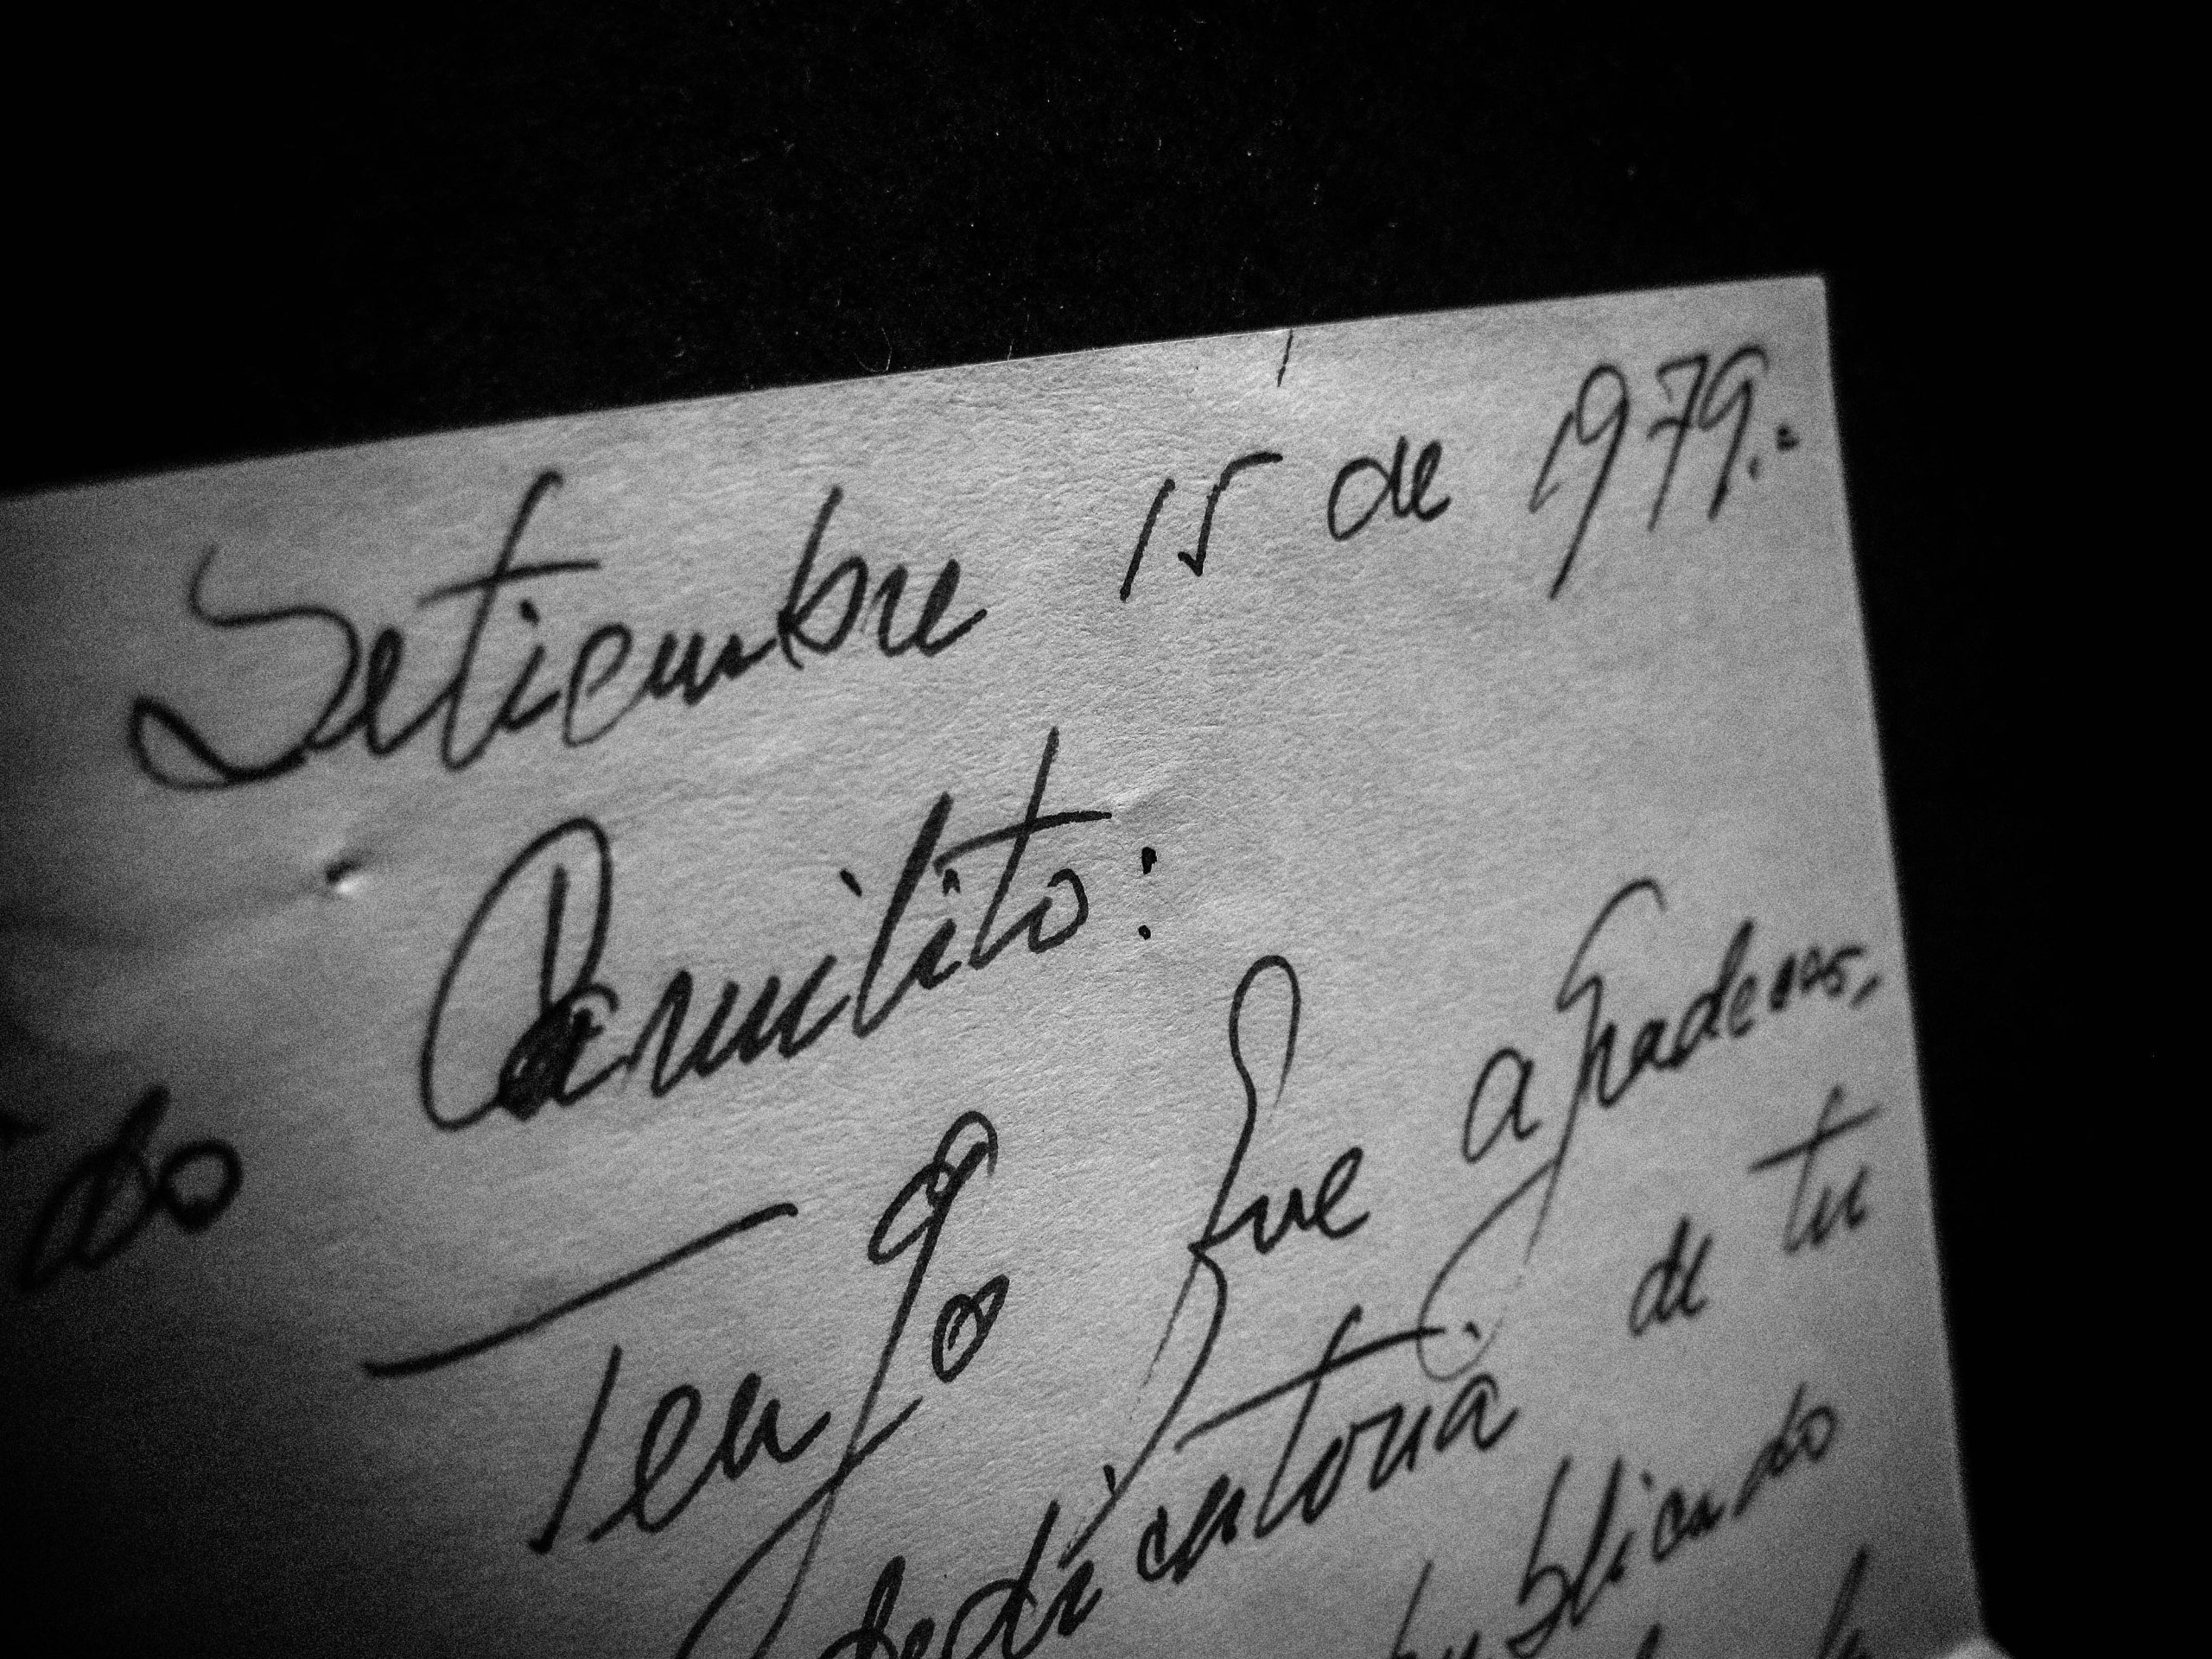 Setiembre 15 de 1979.-
Carmilito:
do
Tengo que agradecer,
dedicatoria de tu
publicando